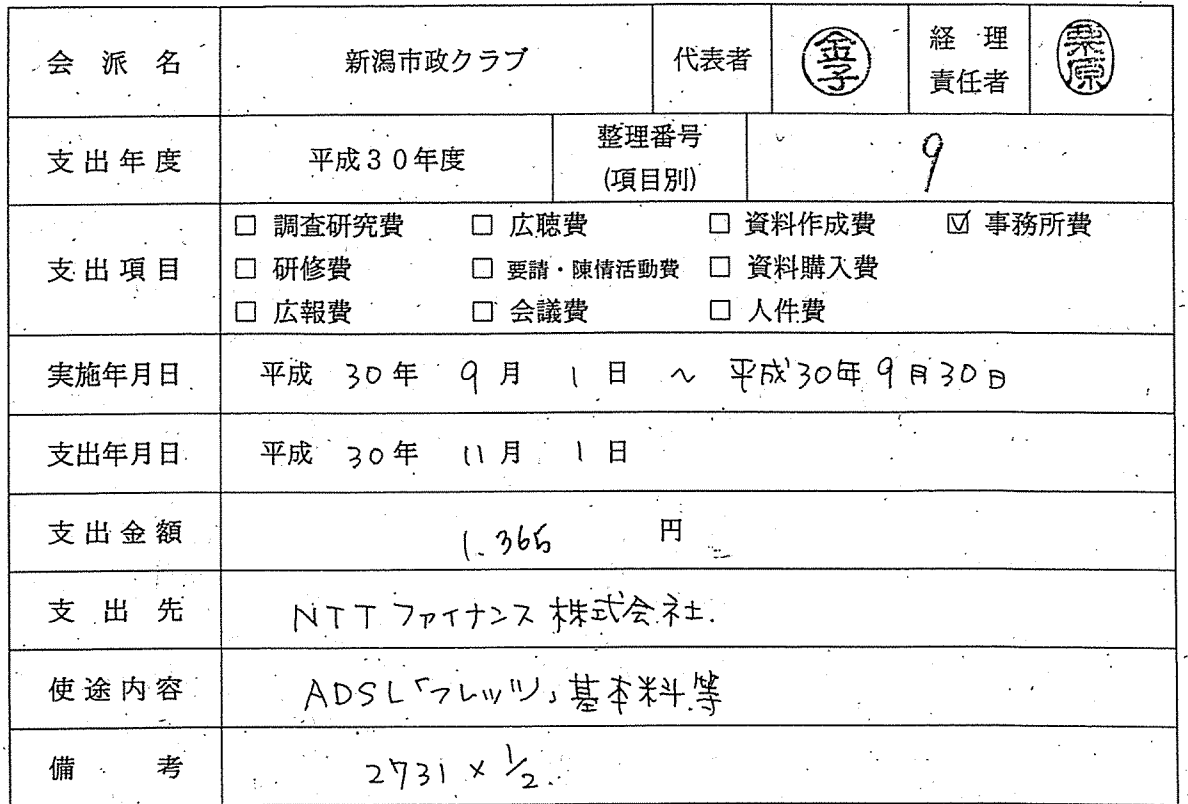 会派名 新潟市政クラブ 代表者 金子 経理責任者 栗原
支出年度 平成30年度 整理番号(項目別) 9
支出項目
□ 調査研究費 □ 広聴費 □ 資料作成費 ☑ 事務所費
□ 研修費 □ 要請・陳情活動費 □ 資料購入費
□ 広報費 □ 会議費 □ 人件費
実施年月日 平成 30年 9月 1日 ～ 平成30年9月30日
支出年月日 平成 30年 11月 1日
支出金額 1.365 円
支出先 NTTファイナンス株式会社.
使途内容 ADSL「フレッツ」基本料等
備考 2731 × 1/2.